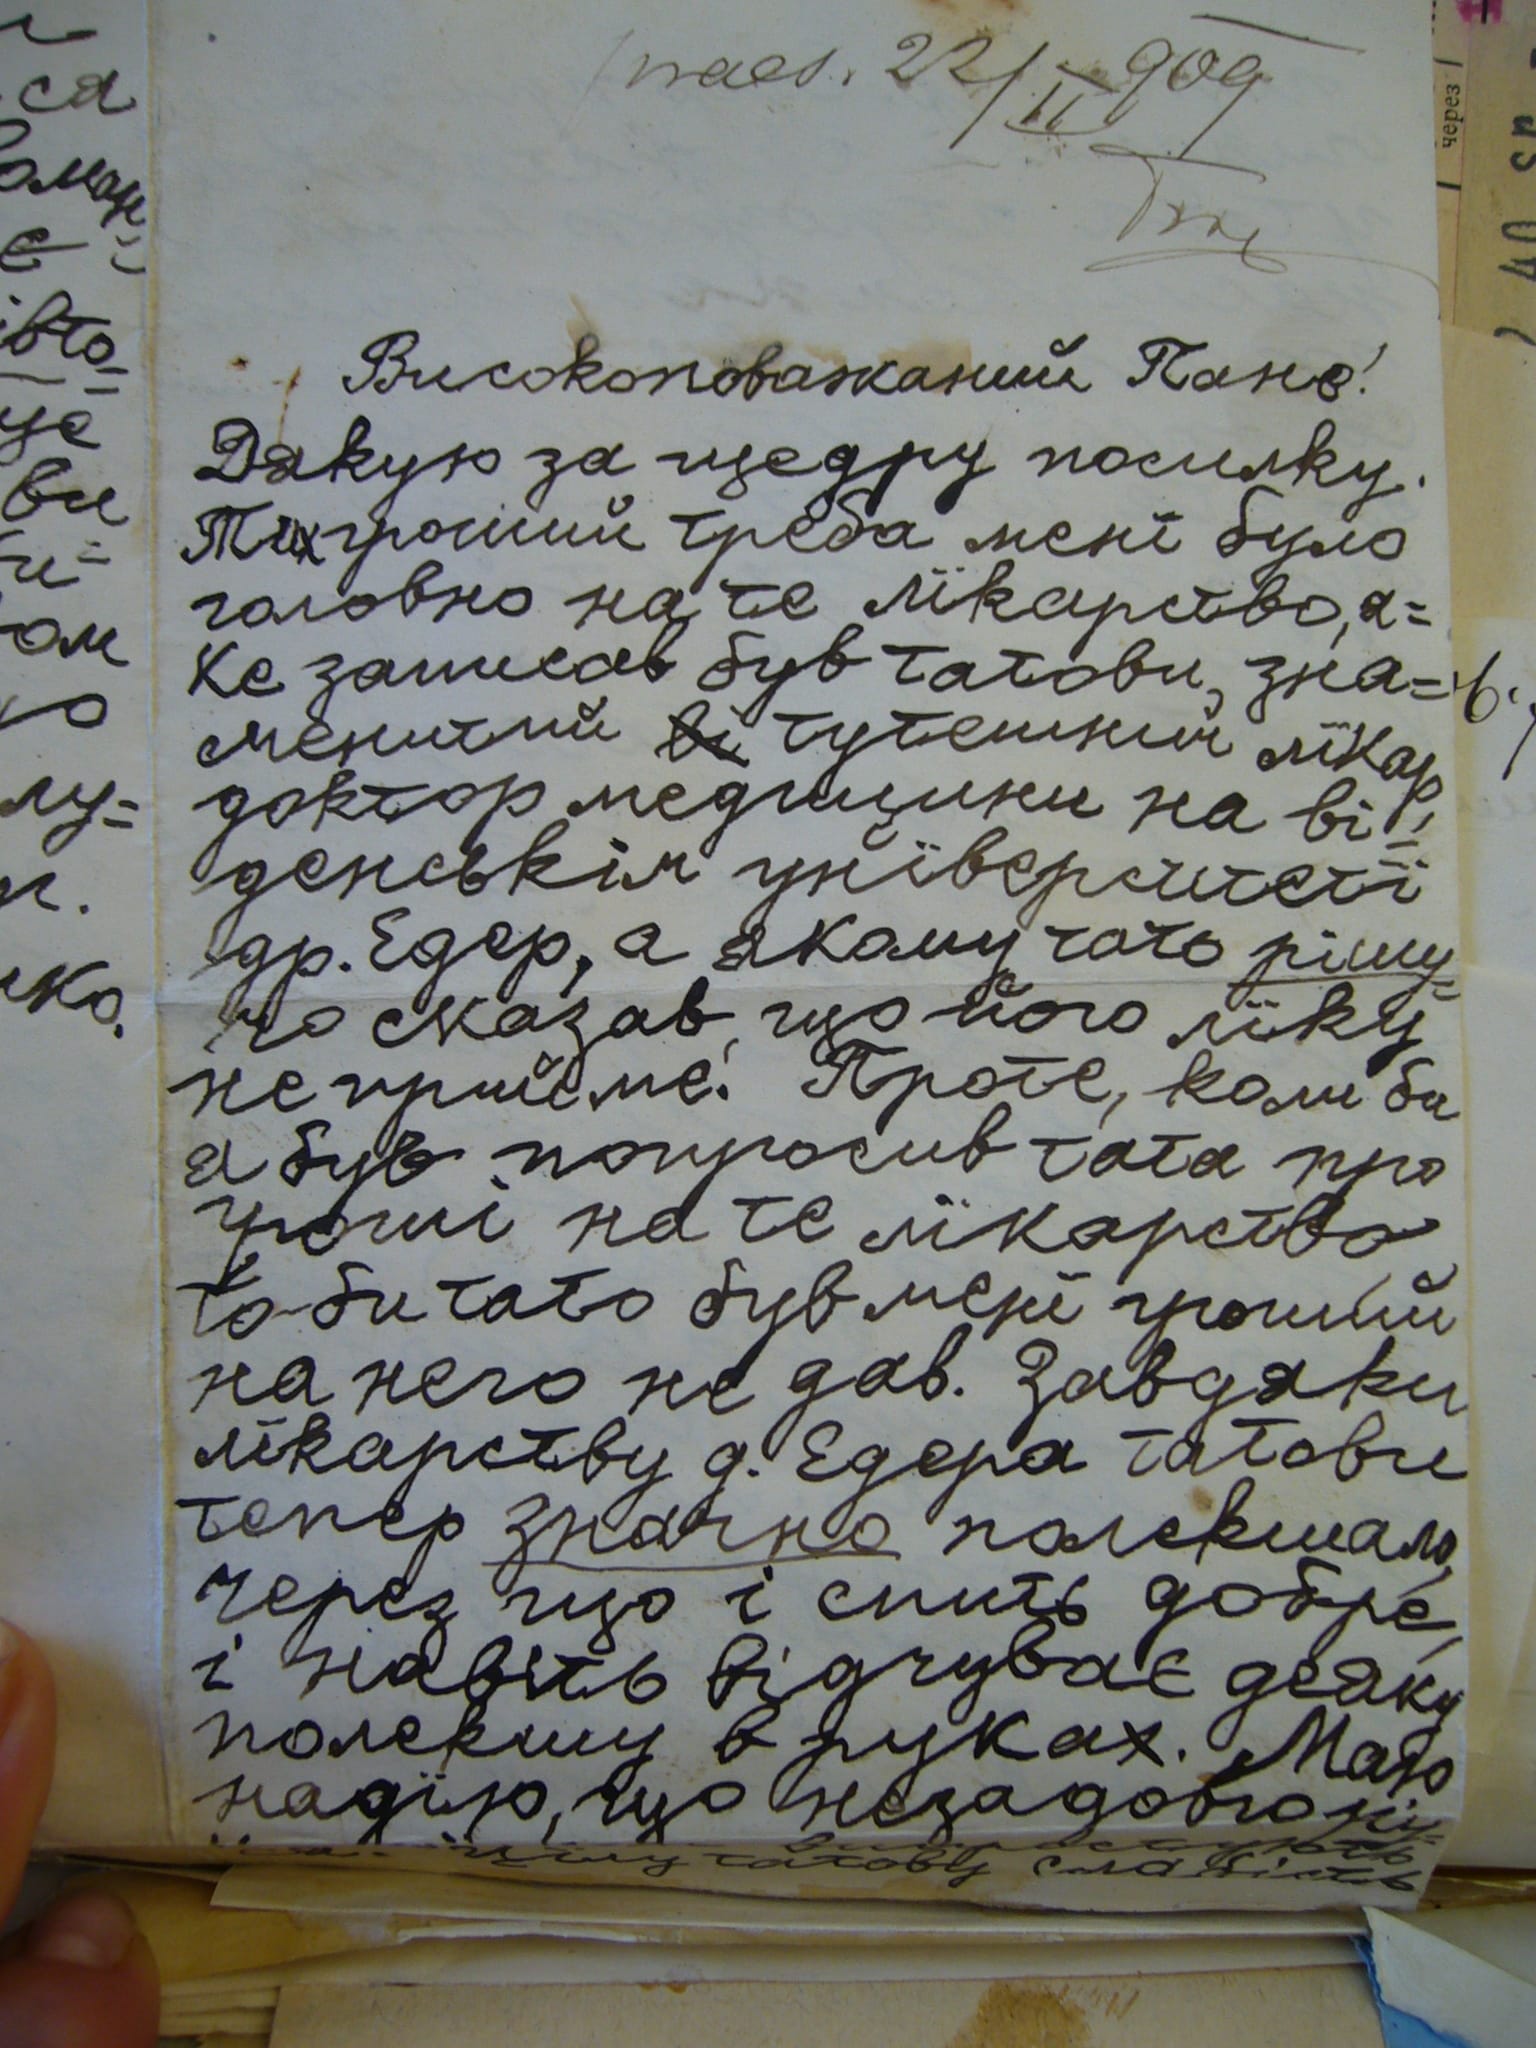 praes. 22/II 909
Високоповажаний Пане!
Дякую за щедру посилку.
Тих гроший треба менї було
головно на те лїкарство, я=
ке записав був татови, зна=
менитий тутешний лїкар,
доктор медицини на ві=
денськім унїверситетї
др. Едер, а якому тато рішу=
чо сказав, що його лїку
не прийме! Проте, коли би
я був попросив тата про
гроші на те лїкарство,
то би тато був менї гроший
на него не дав. Завдяки
лїкарству д. Едера татови
тепер значно полекшало,
через що і спить добре,
і навіть відчуває деяку
полекшу в руках. Маю
надїю, що незадовго
татову слабість
ся
є
івто=
ви
ом
лу=
через
40